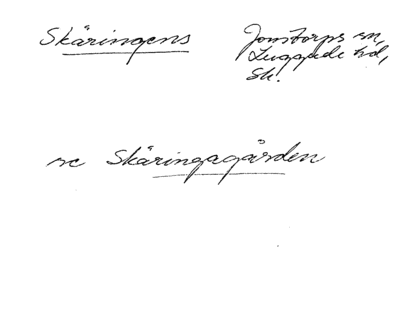 Skäringens
Jonstorps sn,
Luggude hd,
Sk.
se Skäringagården